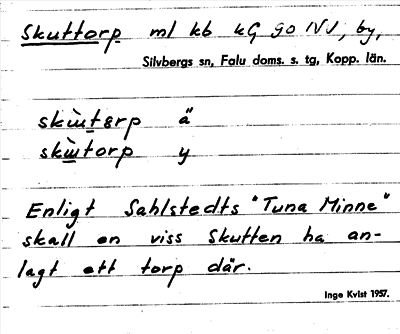 Skuttorp ml kb kG go NV, by,
Silvbergs sn, Falu doms. s. tg, Kopp. län.
ä
y
Enligt Sahlstedts "Tuna Minne"
skall en viss Skutten ha an-
lagt ett torp där.
Inge Kvist 1957.